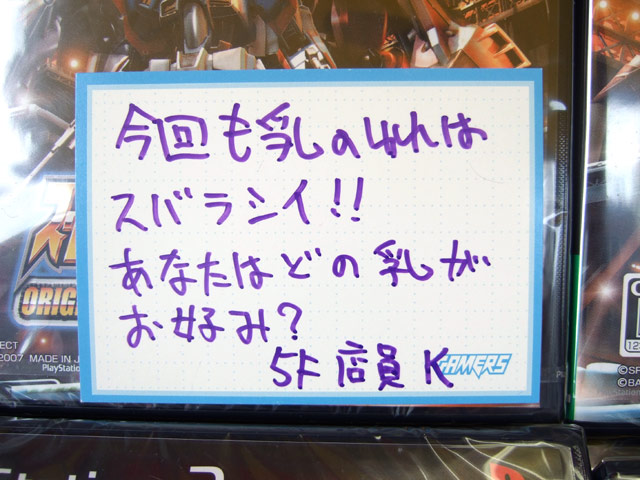 今回も乳のゆれは
スバラシイ!!
あなたはどの乳が
お好み?
5F 店員 K
GAMERS
ORIG
2007 MADE IN J
PlayStation